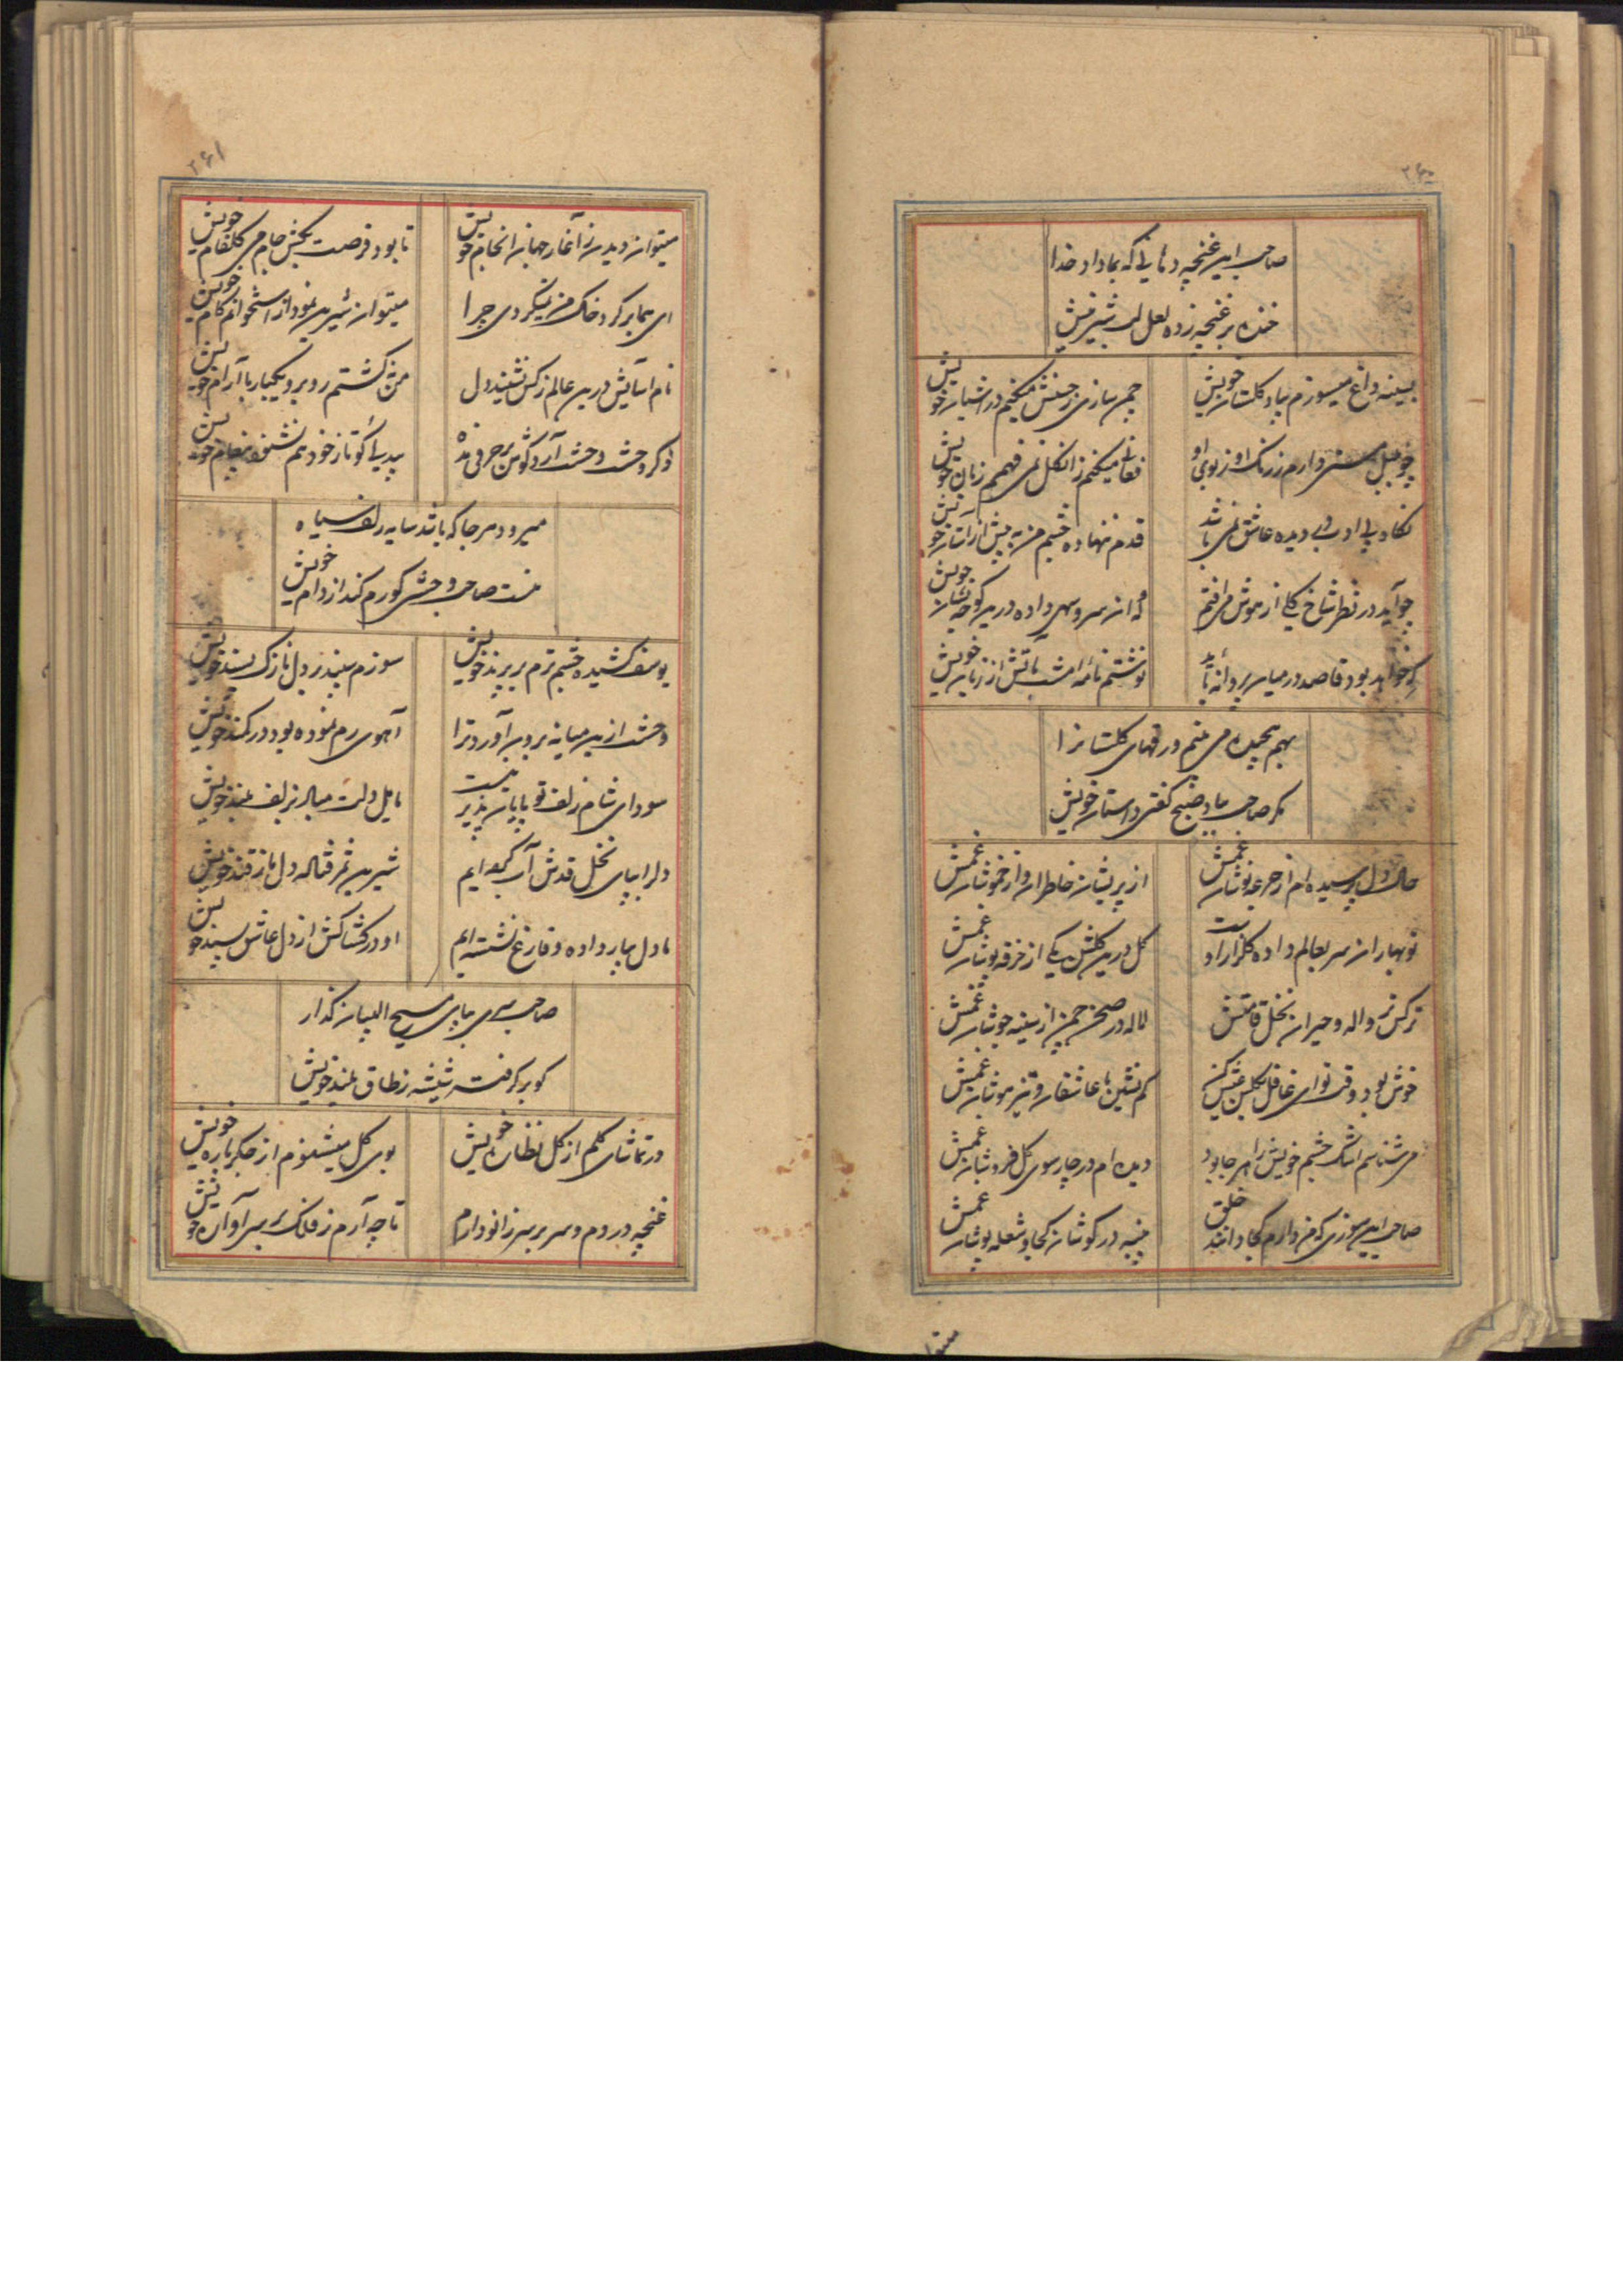 ۲۶۰
صاحب این غنچه دهانی که بما داد خدا
خنده بر غنچه زده لعل لب شیرینش
بسینه داغ میسوزم بیاد گلستان خویش
چمن سازی ز جنبش میکنم در آشیان خویش
چو بلبل مستی دارم ز رنگ او ز بوی او
فغانی میکنم زان گل نمی فهمم زبان خویش
نگاه بی ادب در دیده عاشق نمی باشد
قدم ننهاده چشم من به پیش از آستان خویش
چو آید در نظر شاخ گلی از هوش می افتم
که آن سرو سهی داده درین کوچه نشان خویش
که خواهد بود قاصد در میان پروانه باید
نوشتم نامه امشب باتش از زبان خویش
بهم پیچیده می بینم ورقهای گلستانرا
مگر صاحب بباد صبح گفتی داستان خویش
حال دل پرسیده ام از جرعه نوشان غمش
از پریشان خاطران و از خموشان غمش
نوبهاران سر بعالم داده گلزار اوست
گل درین گلشن یکی از خرقه پوشان غمش
نرگس تر واله و حیران نخل قامتش
لاله در صحن چمن از سینه جوشان غمش
خوش بود وقت تو ای غافل
کم نشین با عاشقان و تیز هوشان غمش
می شناسم اشک چشم خویش را هر جا بود
دیده ام در چارسوی گل فروشان غمش
صاحب این سوزی که من دارم کجا دانند خلق
پنبه در گوشان کجا و شعله پوشان غمش
۲۶۱
میتوان دیدن ز آغاز جهان انجام خویش
تا بود فرصت بکش جام می گلفام خویش
ای هما بر گرد خاک من نمیگردی چرا
میتوان شیرین نمود از استخوانم کام خویش
نام آسایش درین عالم ز کس نشنید دل
من نگشتم روبرو یکبار با آرام خویش
ذکر وحشت وحشت آرد گوش بر حرفم منه
پند بی گو تا ز خود هم نشنوم پیغام خویش
میرود هر جا که باشد سایه زلف سیاه
منت صاحب وحشی گو رم کند از دام خویش
یوسف کشیده چشم ترم بر پرند خویش
سوزم سپند بر دل نازک پسند خویش
وحشت ازین میانه برون آورد ترا
آهوی رم نموده بود در کمند خویش
سودای شام زلف تو پایان پذیر نیست
مایل دلت مباد بزلف بلند خویش
دل را بپای نخل قدش آب کرده ایم
شیرین ثمر فتاده دل ما ز قند خویش
ما دل بیار داده و فارغ نشسته ایم
او در کشاکش از دل عاشق پسند خویش
صاحب سری بپای مسیح الپیان گذار
کو برگرفت شیشه ز طاق بلند خویش
در تماشای گلم از گل نظاره خویش
بوی گل میشنوم از جگر پاره خویش
غنچه دردم و سر بر سر زانو دارم
تا چه آرم ز فلک بر سر آواره خویش